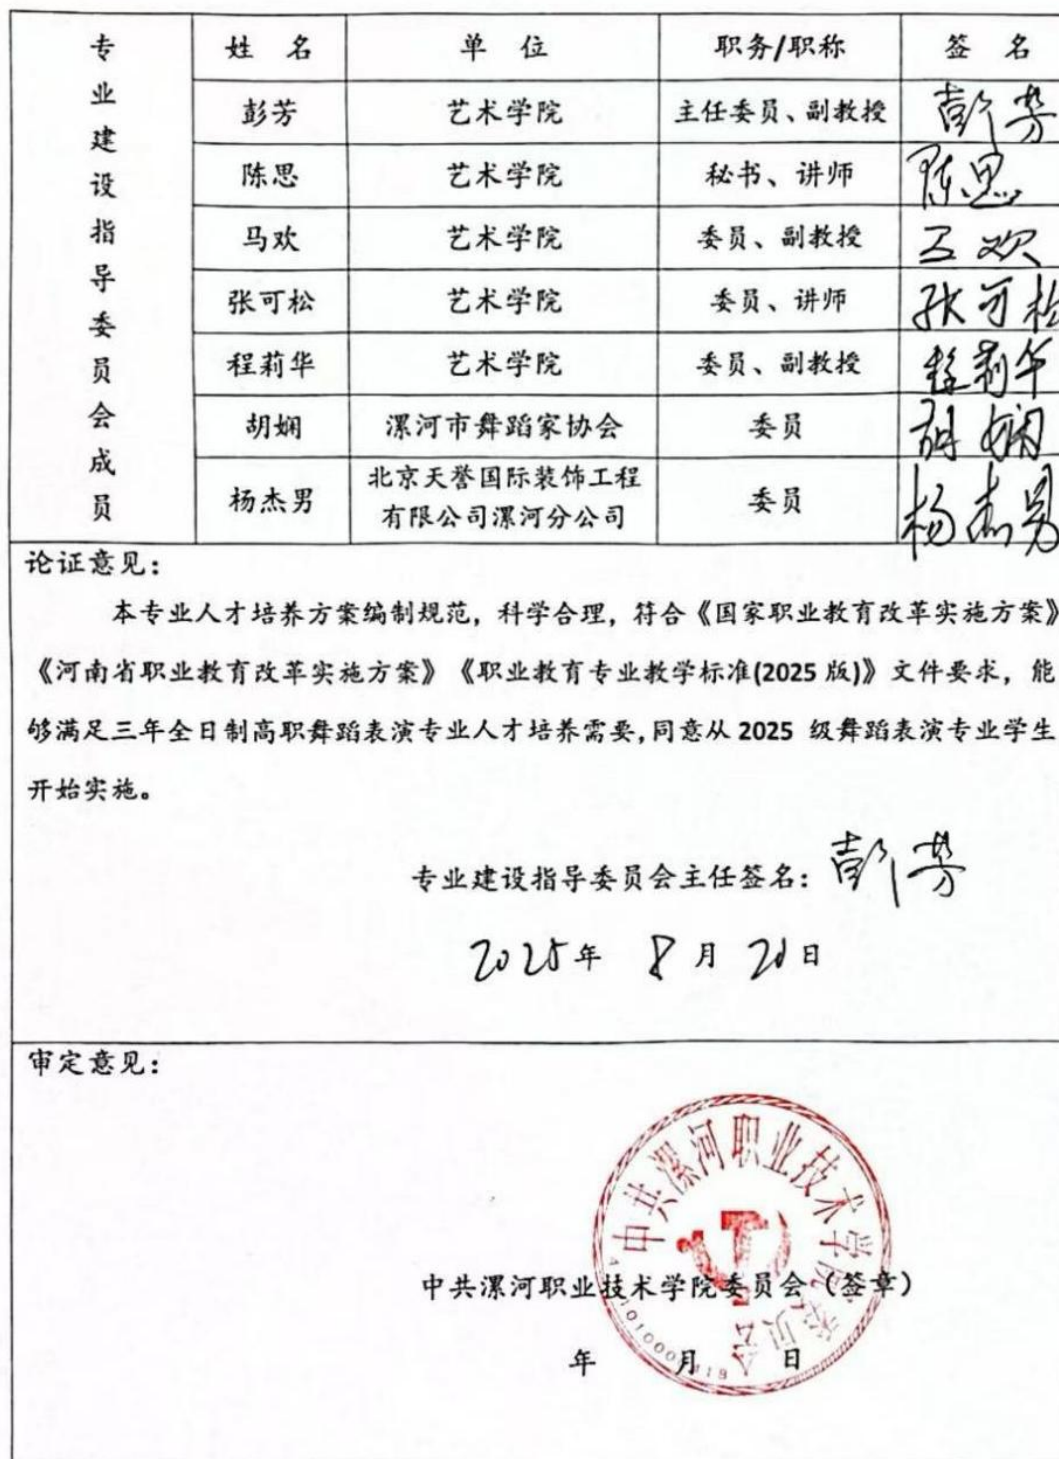 专业建设指导委员会成员
姓 名 单 位 职务/职称 签 名
彭芳 艺术学院 主任委员、副教授 彭芳
陈思 艺术学院 秘书、讲师 陈思
马欢 艺术学院 委员、副教授 马欢
张可松 艺术学院 委员、讲师 张可松
程莉华 艺术学院 委员、副教授 程莉华
胡娴 漯河市舞蹈家协会 委员 胡娴
杨杰男 北京天誉国际装饰工程 委员 杨杰男
有限公司漯河分公司
论证意见：
本专业人才培养方案编制规范，科学合理，符合《国家职业教育改革实施方案》
《河南省职业教育改革实施方案》《职业教育专业教学标准(2025 版)》文件要求，能
够满足三年全日制高职舞蹈表演专业人才培养需要，同意从 2025 级舞蹈表演专业学生
开始实施。
专业建设指导委员会主任签名：彭芳
2025年 8月 20日
审定意见：
中共漯河职业技术学院委员会
中共漯河职业技术学院委员会（签章）
年 月 日